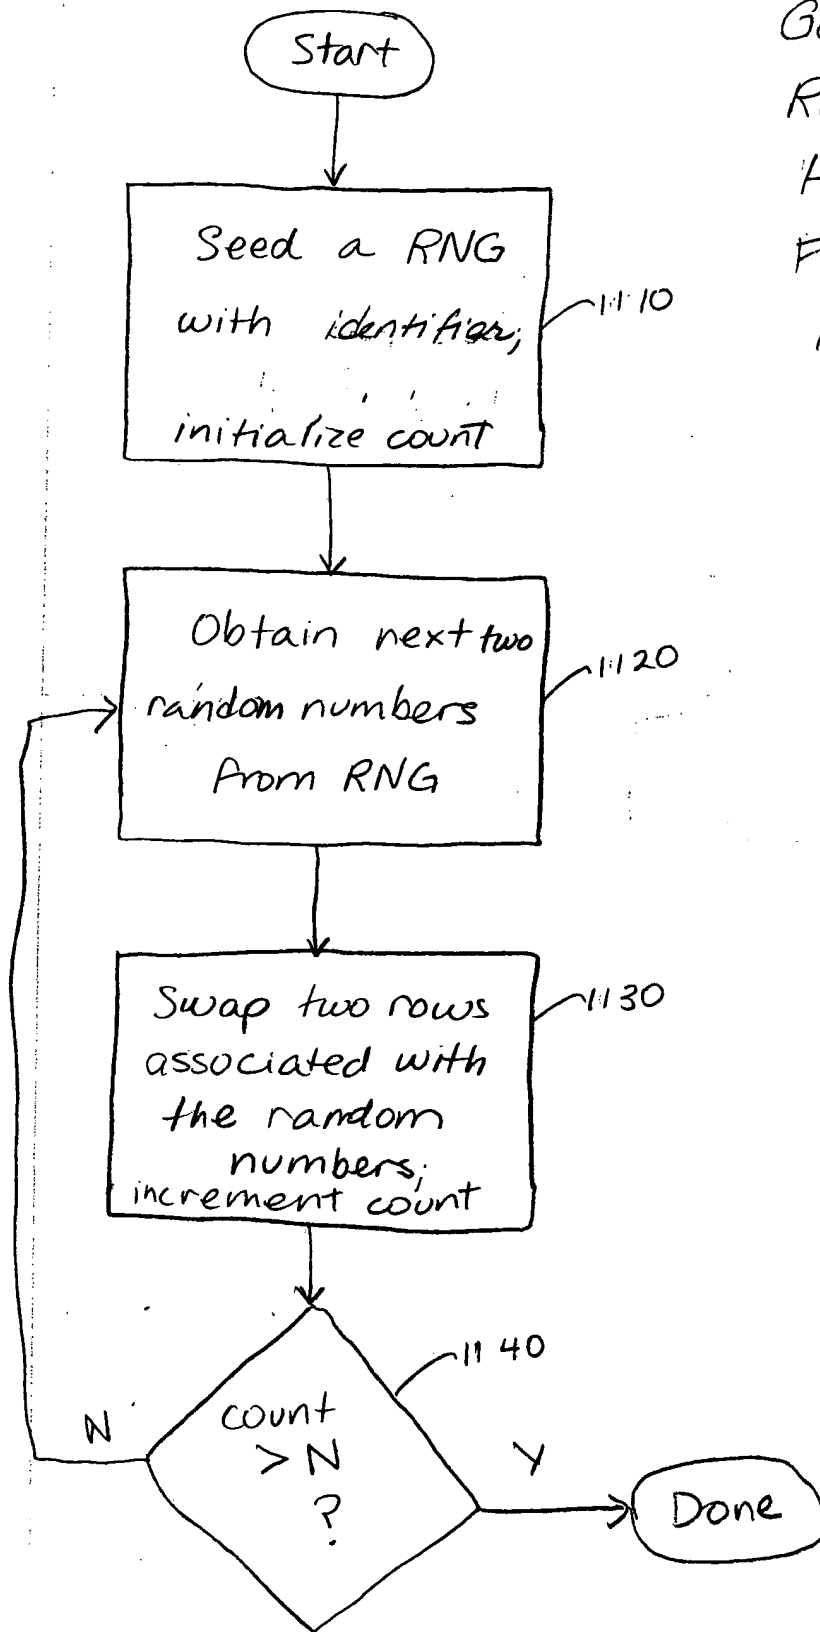 Start
Seed a RNG
with identifier,
initialize count
1110
Obtain next two
random numbers
from RNG
1120
Swap two rows
associated with
the random
numbers;
increment count
1130
count
> N
?
1140
N
Y
Done